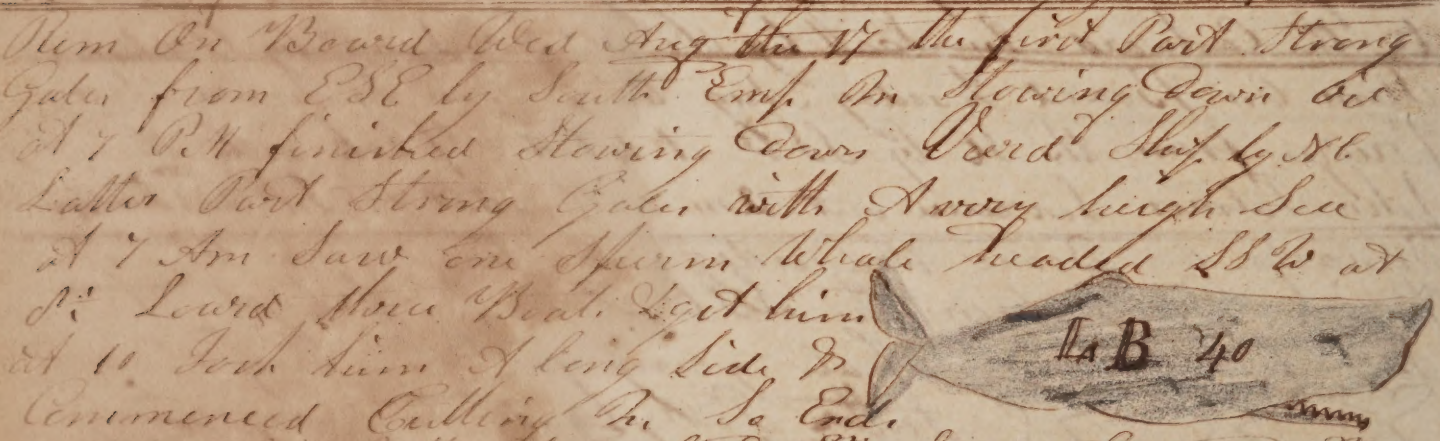 Rem On Board Wed Aug the 17 the first Part Strong
Gales from ESE by South Emp in Stowing Down oil
At 7 P.M finished Stowing Down Ship by
Latter Part Strong Gales with A very heigh Sea
At 7 Am Saw one Sperm Whale headed SSW at
8 Lowrd three Boats & got him
at 10 Took him A long Side &
Commenced Cutting In So Ends
L B 40